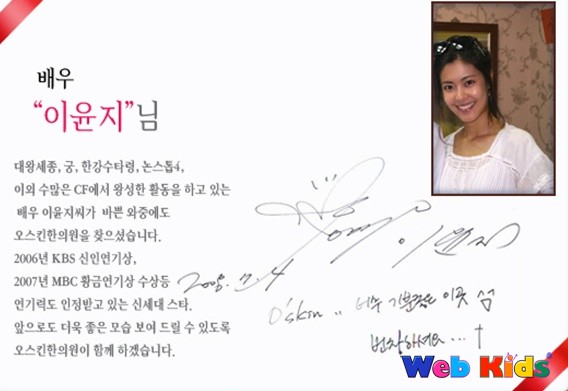 배우
“이윤지”님
대왕세종, 궁, 한강수타령, 논스톱4,
이외 수많은 CF에서 왕성한 활동을 하고 있는
배우 이윤지씨가 바쁜 와중에도
오스킨한의원을 찾으셨습니다.
2006년 KBS 신인연기상,
2007년 MBC 황금연기상 수상등
연기력도 인정받고 있는 신세대 스타.
앞으로도 더욱 좋은 모습 보여 드릴 수 있도록
오스킨한의원이 함께 하겠습니다.
이윤지
2008. 7. 4
O'skin .. 너무 기분좋은 이곳
번창하세요...
Web Kids